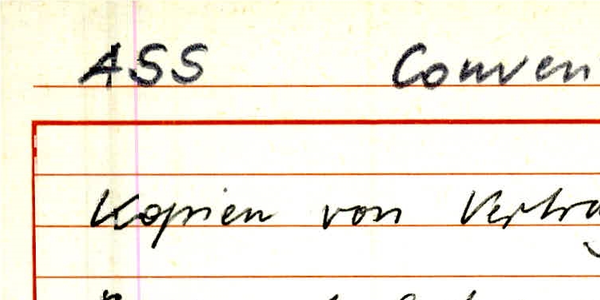 ASS Conven
Kopien von Vertra